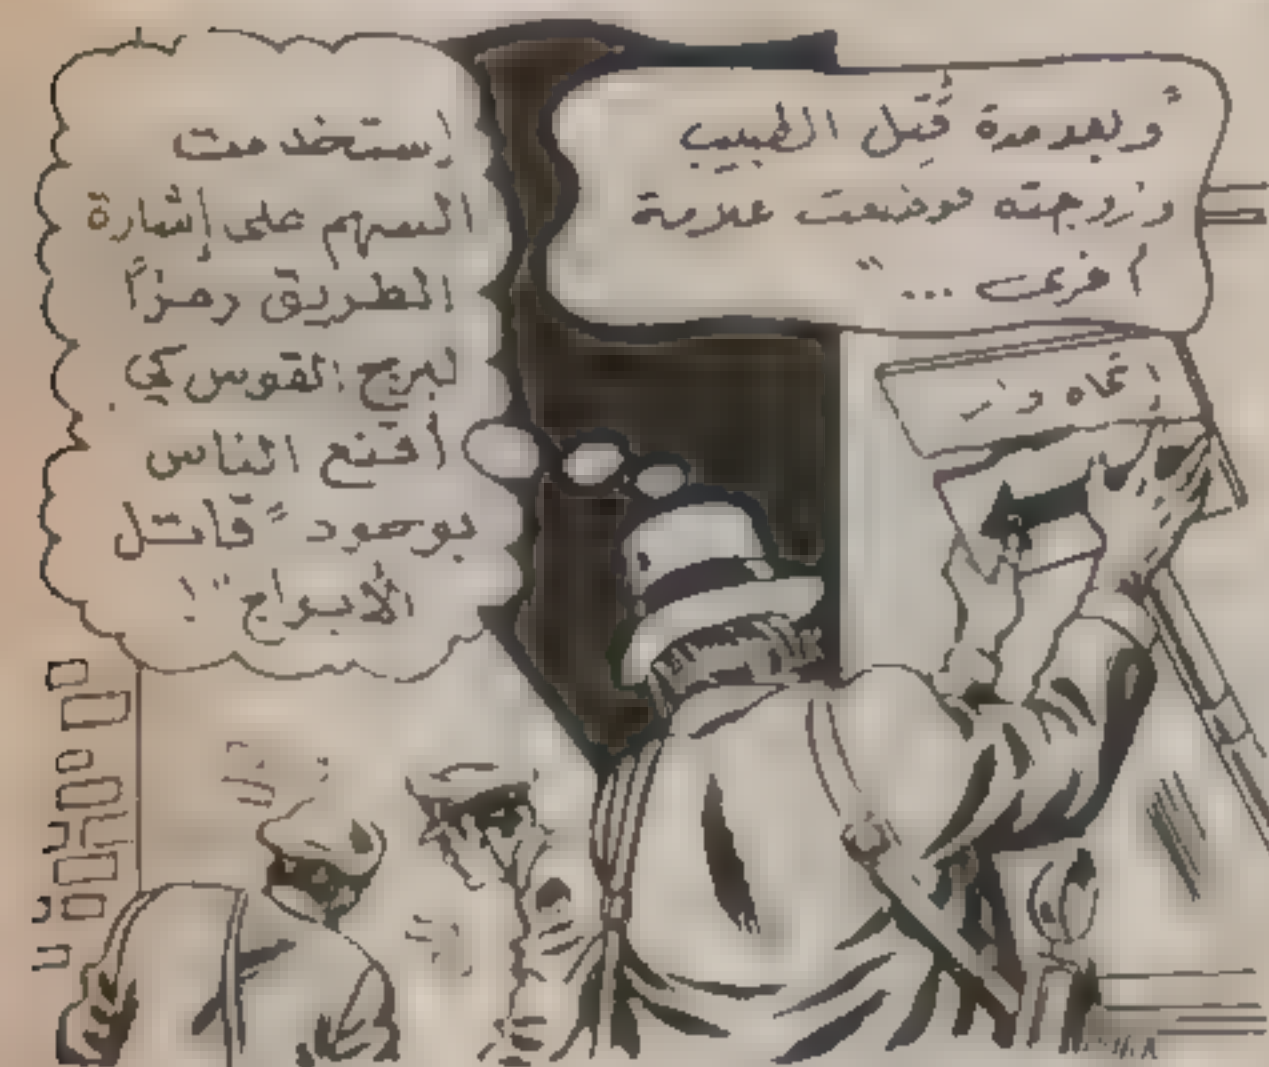 " وبعد مدة قُتِل الطبيب
وزوجته فوضعت علامة
أخرى ... "
إتجاه واحد
إستخدمت
السهم على إشارة
الطريق رمزاً
لبرج القوس كي
أقنع الناس
بوجود " قاتل
الأبراج " !